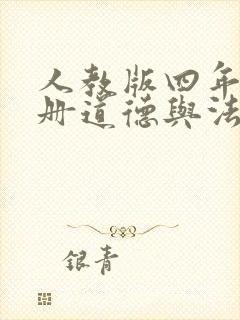 人教版四年
册道德與法
银青